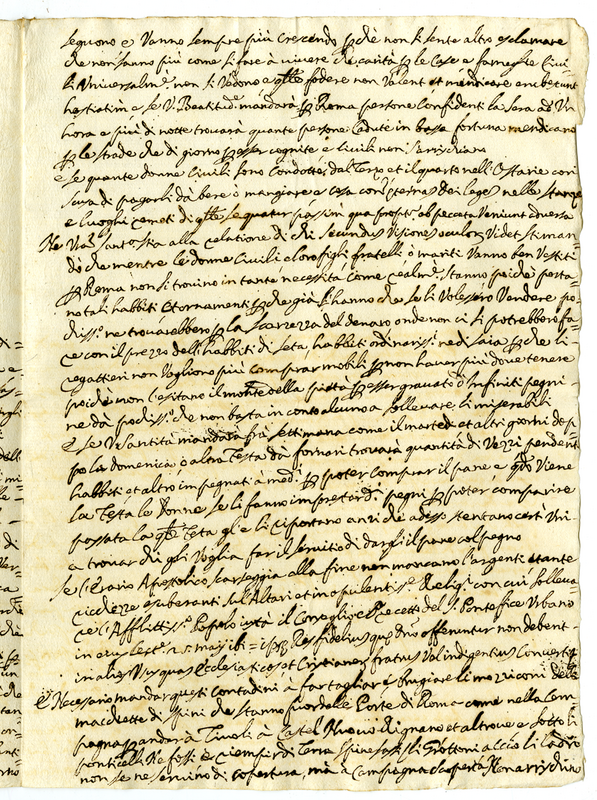 seguono e Vanno sempre più crescendo che non si sente altro esclamare
che non sanno più come si fare à vivere di carità le Case e famiglie Civi
li Universalm. non si Vedono e fodere non Valent et mendicare erubescunt
e se V. Beatitud. mandarà Roma persone Confidenti la Sera ad Un
hora e più di notte trovarà quante persone Cadute in bassa fortuna mendicano
le strade che di giorno esser cognite e Civili non s'arrischiano
e se quante donne Civili sono Condotte dal Terzo et il quarto nell' Ostarie con
scusa di pagarli dà bere e mangiare e Cosa nelle Stanze
e luoghi remoti di peccata Veniunt adversa
Ne Vra Santo stia alla relatione di chi secundus Visione oculor Videt stiman
dò che mentre le donne Civili e loro figli fratelli ò mariti Vanno ben Vestiti
Roma non si trovino in tante necessità come realm. Stanno poiche porta
no tali habbiti et ornamenti che già li hanno che se li Volessero Vendere po
chiss. ne trovarebbero la Scarzezza del denaro onde non ci si potrebbero fa
re con il prezzo delli habbiti di Seta, habbiti ordinariss. ne di Saia che li
regattieri non Vogliono più comprar mobili non haver più dove tenere
poiche non l'esitano il monte della pietà esser gravato d'Infiniti pegni
ne dà pochiss. che non basta in conto alcuno a sollevare li miserabili
e se V. Santità mandarà frà settimana come il martedi et altri giorni do
po la domenica ò altra Festa dà fornari trovarà quantità di Vezzi pendenti
habbiti et altro impegnati à medi poter Comprar il pane e qdo Viene
la Festa le Donne se li fanno imprestar di pegni poter comparire
passata la Festa gl' e li riportano anzi che adesso stentano certi Vni
a trovar chi gli Voglia far il servitio di dargli il pane col pegno
se l'Erario Apostolico scarseggia alla fine non mancano l'argenti et tante
ricchezze esuberanti sul'Altari et in opulentiss. Religi con cui solleva
re l'Afflittiss. Popolo iuxta il Conseglio e Precetto del S. Pontefice Urbano
Res fidelius que Dno offeruntur non debent
in alios Usus quas Ecclesiasticos et Cristianor fratrus Vel indigentius Converti
E' Necessario mandar questi Contadini à far tagliare e brugiare li
macchiette di spini che stanno fuor delle Porte di Roma come nella Cam
pagna andar à Tivoli à Castel Nuovo Rignano et altrove e sotto li
ponticelli Ne fossi e riempir di Terra e spine sassi li Grottoni acciò li Ladri
non se ne servino di Copertura, mà a Campagna scoperta Non arrischino